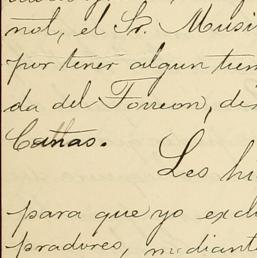 ñol, el Sr. Musi
por tener algun tiem
da del Torreon, di
Cañas.
Les hi
para que yo excl
pradores, mediant